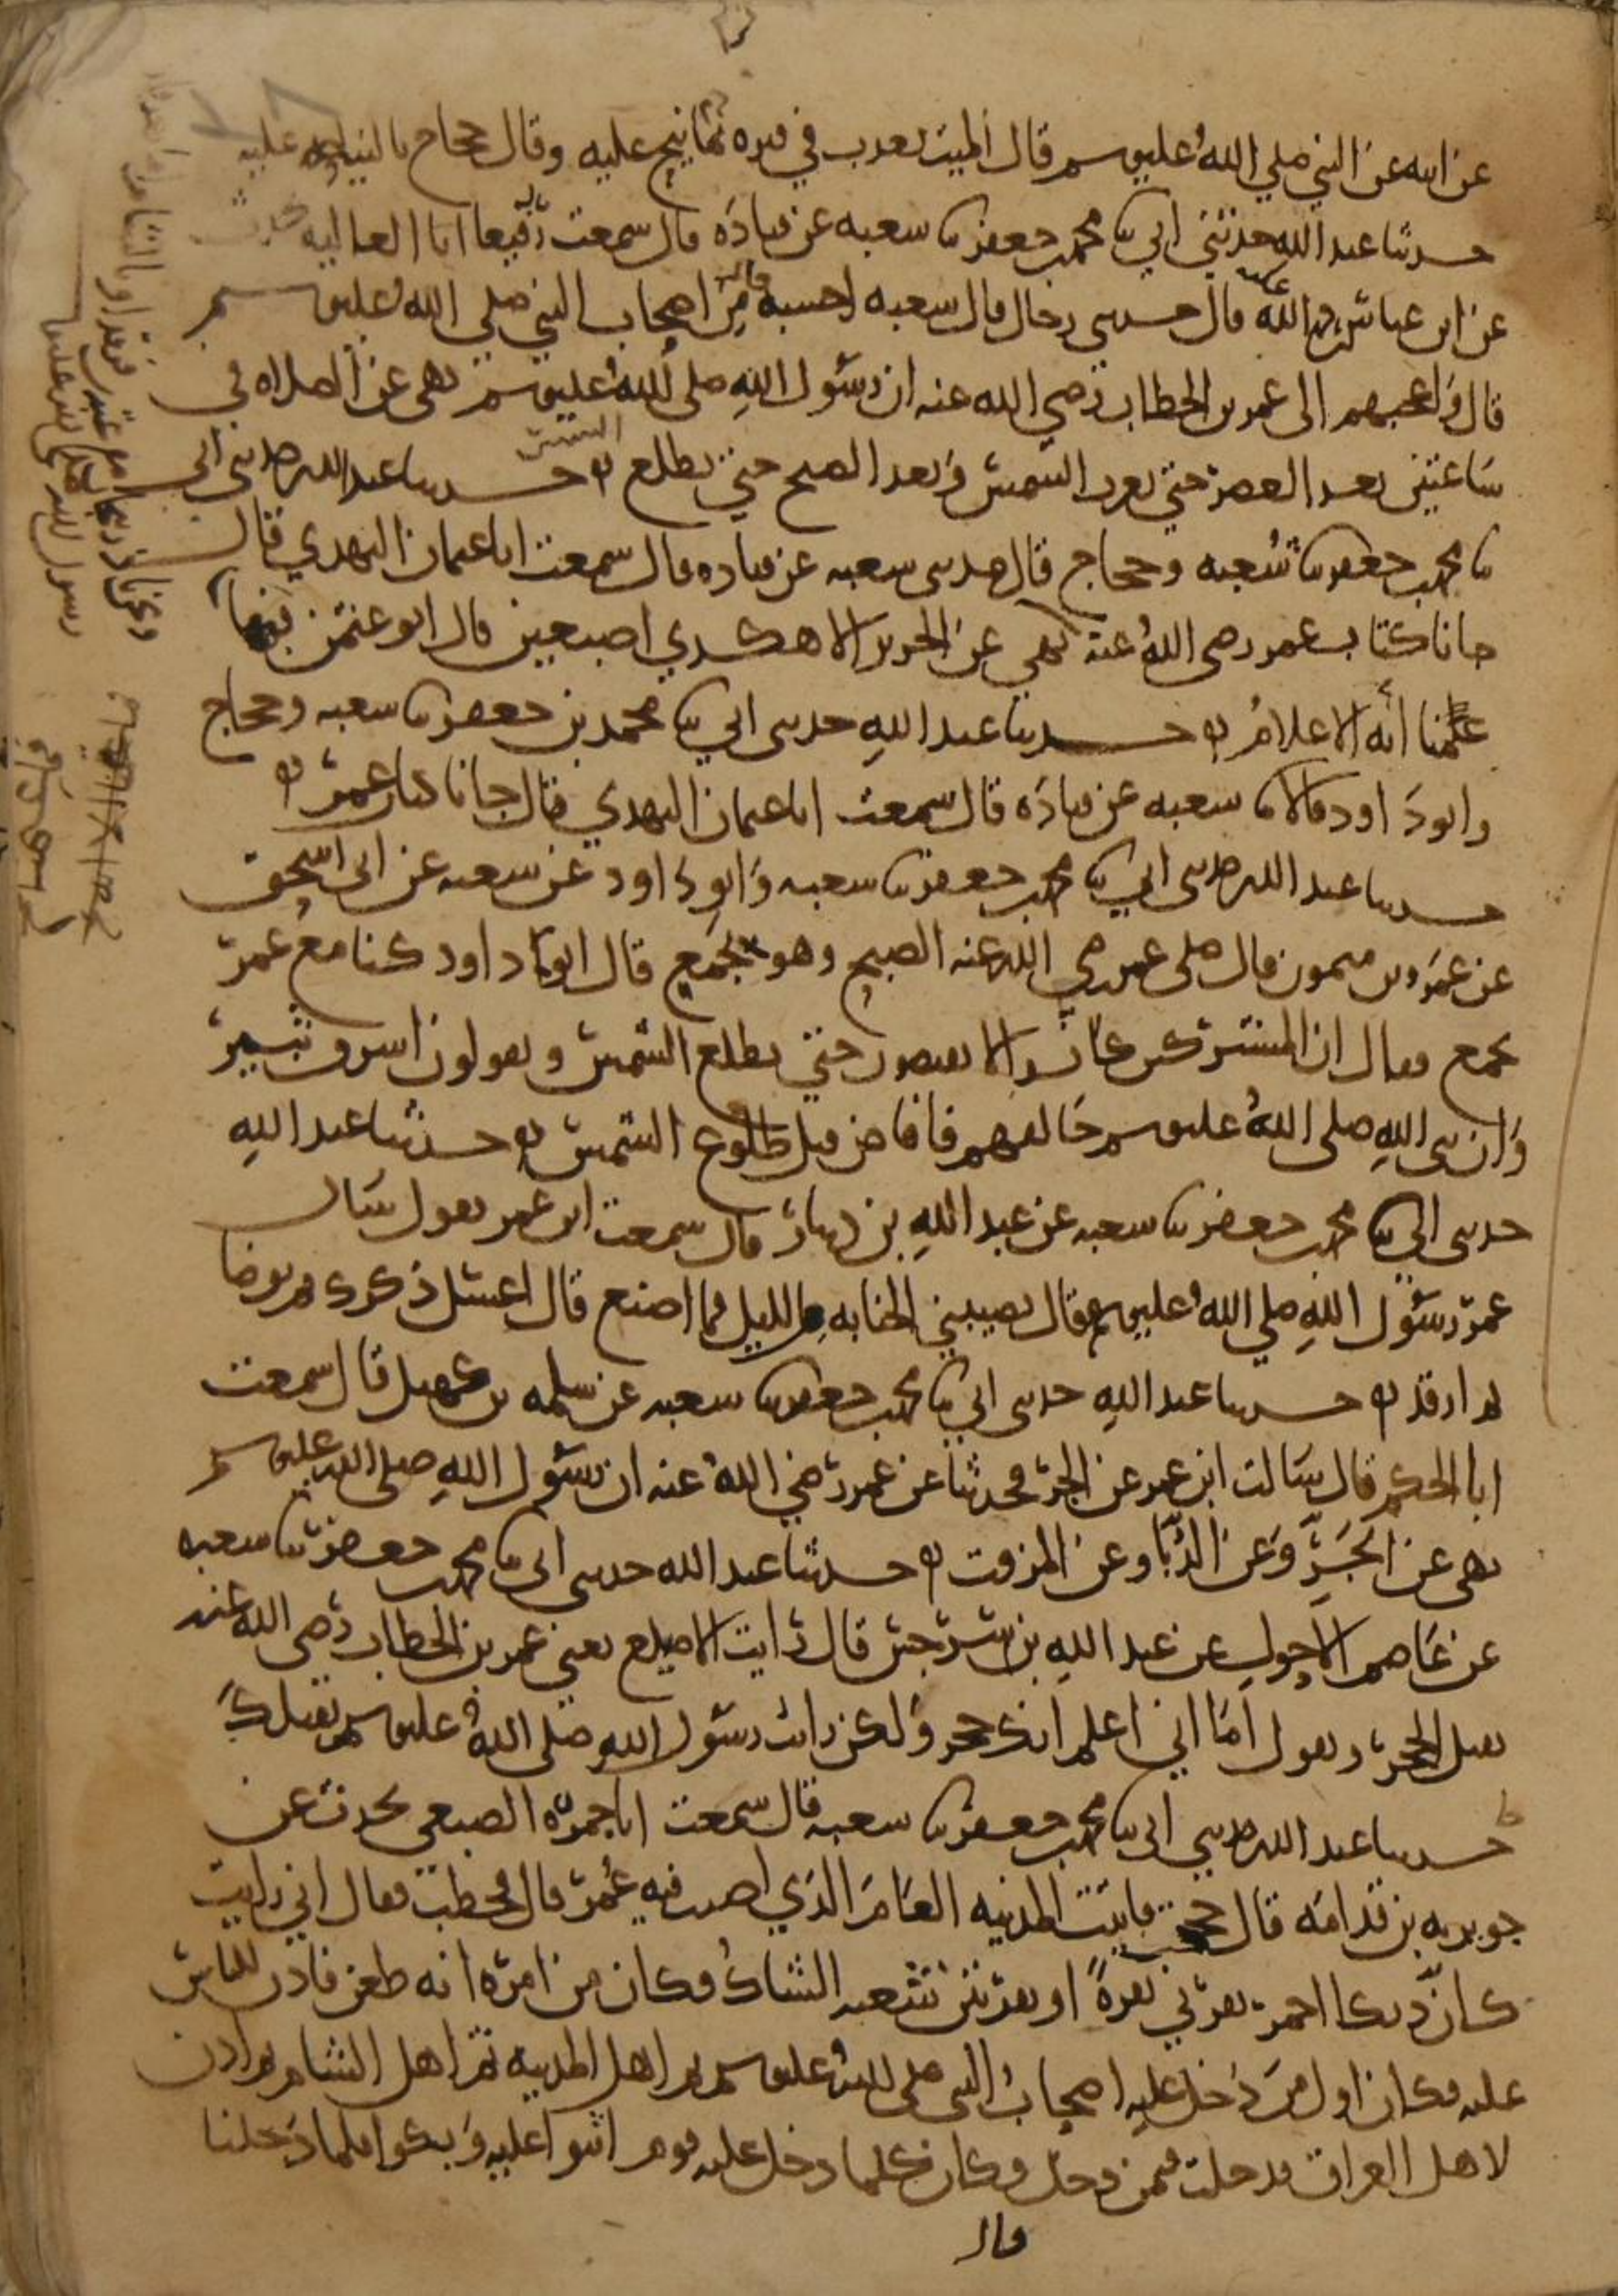 عن ابيه عن النبي صلي الله عليه وسلم قال الميت يعذب في قبره بما نيح عليه وقال حجاج بالنياحه عليه
حدثنا عبد الله حدثني ابي ثنا محمد بن جعفر ثنا شعبه عن قتاده قال سمعت رفيعا ابا العاليه يحدث
عن ابن عباس رضي الله عنه قال حدثني رجال قال شعبه احسبه قال من اصحاب النبي صلي الله عليه وسلم
قال واعجبهم الى عمر بن الخطاب رضي الله عنه ان رسول الله صلى الله عليه وسلم نهى عن الصلاه في
ساعتين بعد العصر حتي تغرب الشمس وبعد الصبح حتي تطلع الشمس حدثنا عبد الله حدثني ابي
ثنا محمد بن جعفر ثنا شعبه وحجاج قال حدثني شعبه عن قتاده قال سمعت ابا عثمان النهدي قال
جانا كتاب عمر رضي الله عنه نهي عن الحرير الا هكدي اصبعين قال ابو عثمن فيما
علمنا انه الاعلام حدثنا عبد الله حدثني ابي ثنا محمد بن جعفر ثنا شعبه وحجاج
وابو داود قالا ثنا شعبه عن قتاده قال سمعت ابا عثمان النهدي قال جانا كتاب عمر
حدثنا عبد الله حدثني ابي ثنا محمد بن جعفر ثنا شعبه وابو داود عن شعبه عن ابي اسحق
عن عمرو بن ميمون قال صلى عمر رضي الله عنه الصبح وهو بجمع قال ابو داود كنا مع عمر
بجمع فقال ان المشركين كانوا لا يفيضون حتي تطلع الشمس ويقولون اشرق ثبير
وان نبي الله صلى الله عليه وسلم خالفهم فافاض قبل طلوع الشمس حدثنا عبد الله
حدثني ابي ثنا محمد بن جعفر ثنا شعبه عن عبد الله بن دينار قال سمعت ابن عمر يقول سال
عمر رسول الله صلي الله عليه وسلم فقال تصيبني الجنابه من الليل فما اصنع قال اغسل ذكرك ثم توضا
ثم ارقد حدثنا عبد الله حدثني ابي ثنا محمد بن جعفر ثنا شعبه عن سلمه بن كهيل قال سمعت
ابا الحكم قال سالت ابن عمر عن الجر فحدثنا عن عمر رضي الله عنه ان رسول الله صلى الله عليه وسلم
نهى عن الجر وعن الدبا وعن المزفت حدثنا عبد الله حدثني ابي ثنا محمد بن جعفر ثنا شعبه
عن عاصم الاحول عن عبد الله بن سرجس قال رايت الاصيلع يعني عمر بن الخطاب رضي الله عنه
يقبل الحجر ويقول اما اني اعلم انك حجر ولكن رايت رسول الله صلى الله عليه وسلم يقبلك
حدثنا عبد الله حدثني ابي ثنا محمد بن جعفر ثنا شعبه قال سمعت ابا جمره الضبعي يحدث عن
جويريه بن قدامه قال حججت فاتيت المدينه العام الذي اصيب فيه عمر قال فخطب فقال اني رايت
كان ديكا احمر نقرني نقرة او نقرتين شعبه الشاك وكان من امره انه طعن فاذن للناس
عليه فكان اول من دخل عليه اصحاب النبي صلى الله عليه وسلم ثم اهل المدينه ثم اهل الشام ثم اذن
لاهل العراق فدخلت فيمن دخل وكان كلما دخل عليه قوم اثنوا عليه وبكوا فلما دخلنا
قال